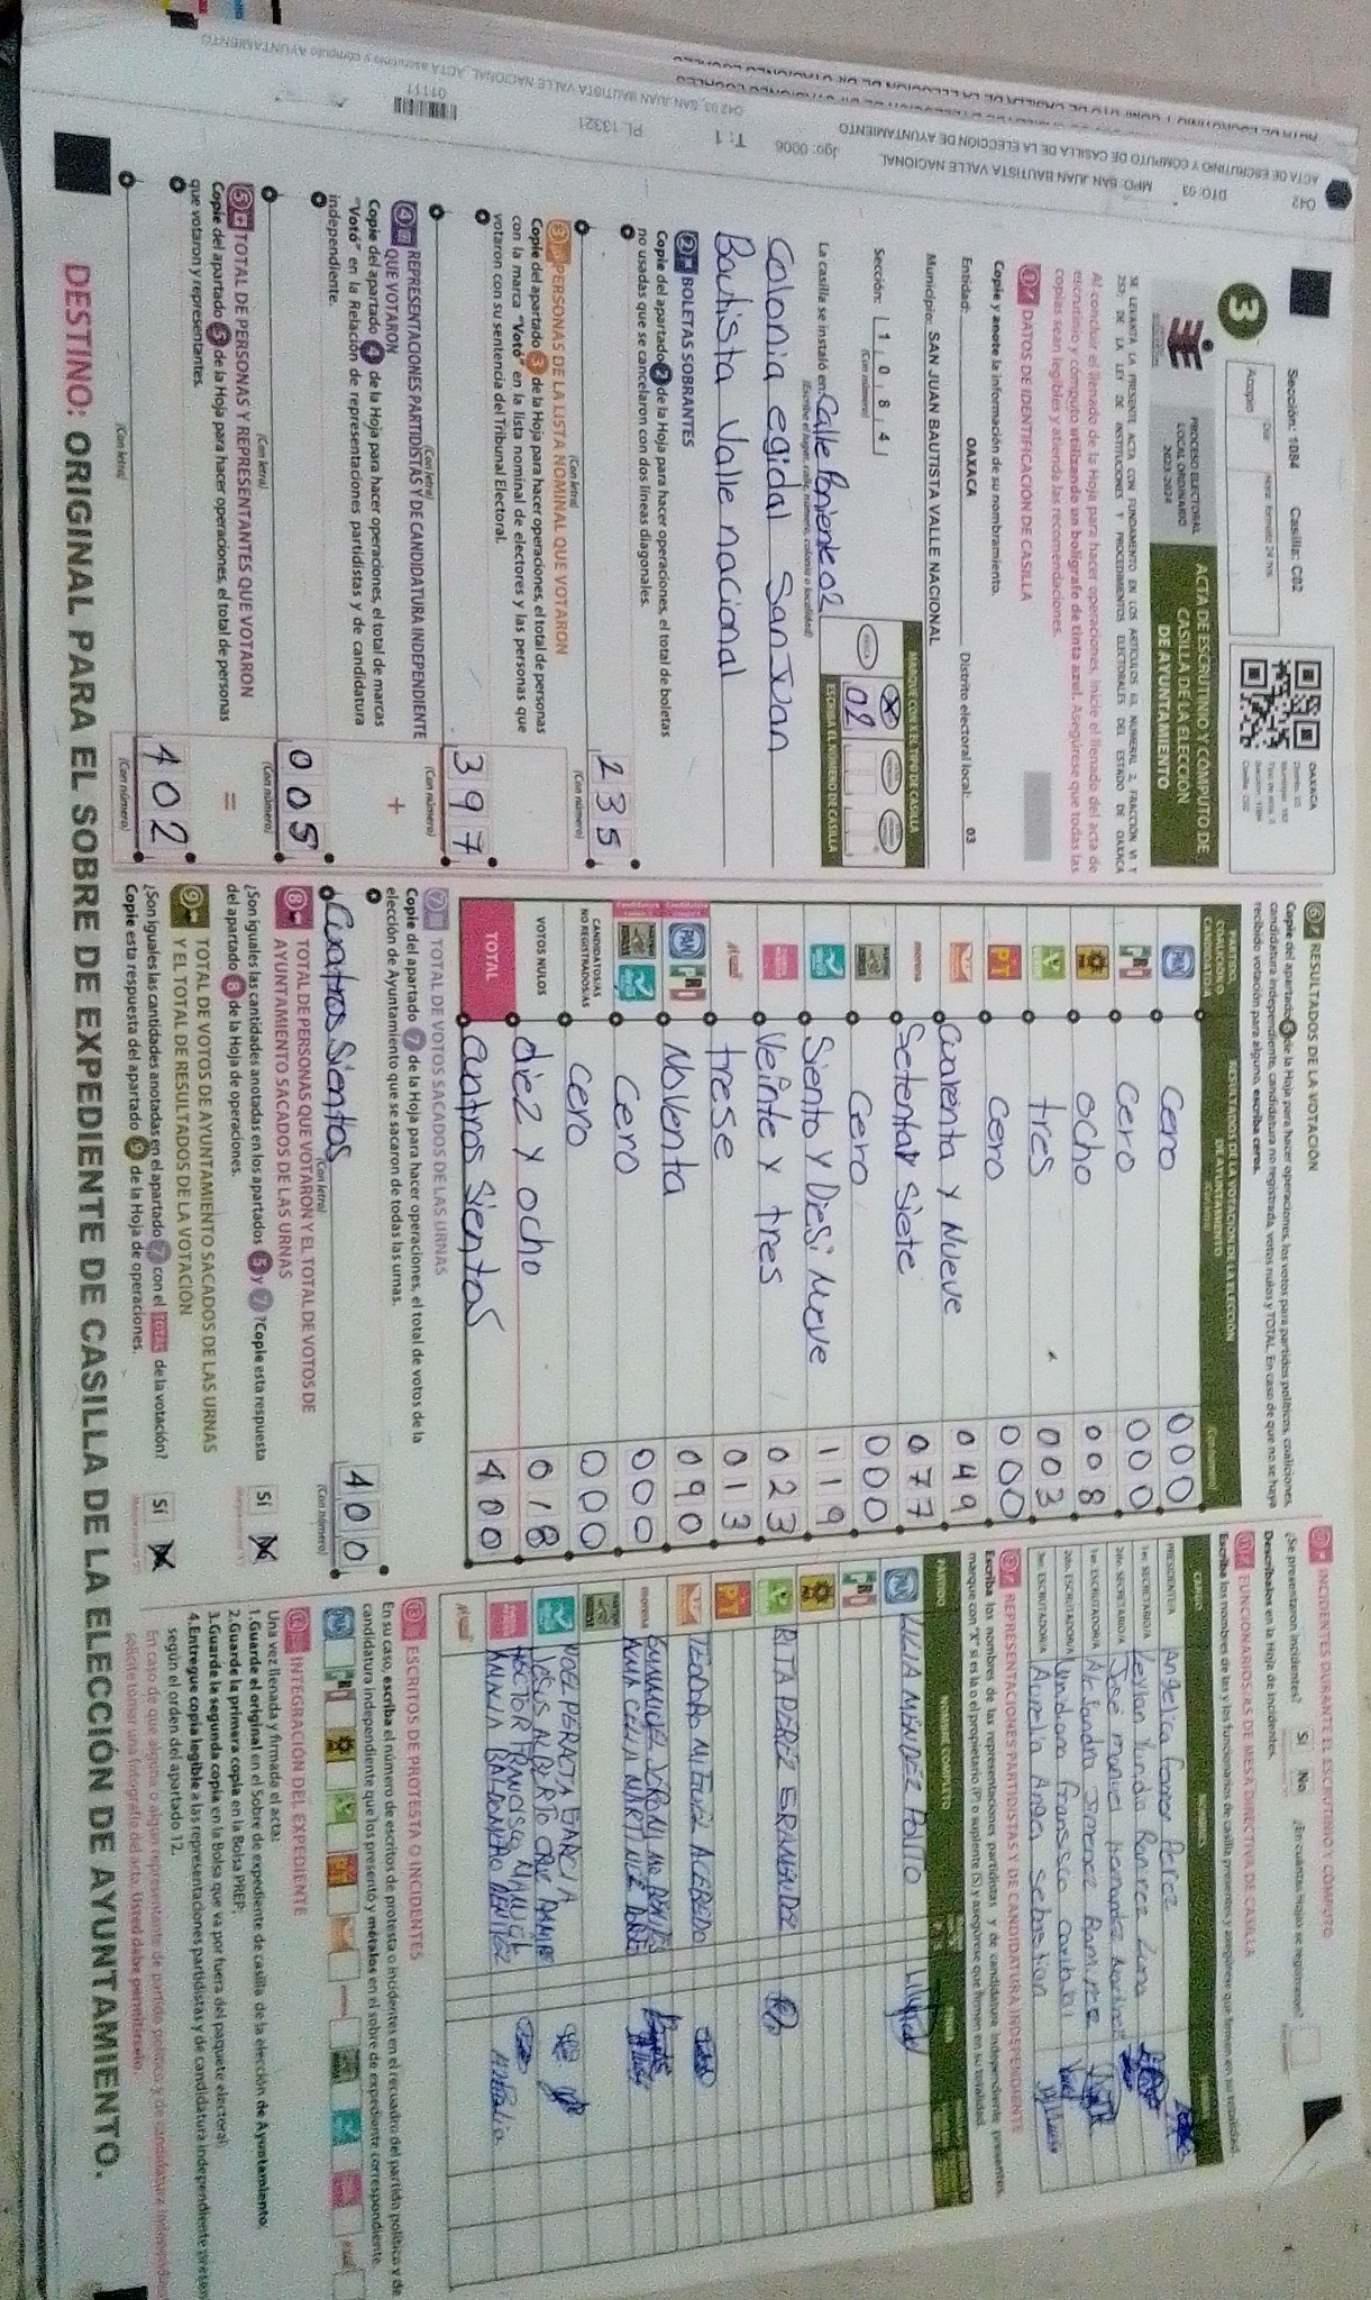 Sección: 1084 Casilla: C02
3
Acopio
OAXACA
PROCESO ELECTORAL
LOCAL ORDINARIO
2023-2024
ACTA DE ESCRUTINIO Y CÓMPUTO DE
CASILLA DE LA ELECCIÓN
DE AYUNTAMIENTO
SE LEVANTA LA PRESENTE ACTA CON FUNDAMENTO EN LOS ARTÍCULOS
Al concluir el llenado de la Hoja para hacer operaciones, inicie el llenado del acta de
escrutinio y cómputo utilizando un bolígrafo de tinta azul. Asegúrese que todas las
copias sean legibles y atienda las recomendaciones.
1 DATOS DE IDENTIFICACIÓN DE CASILLA
Copie y anote la información de su nombramiento.
Entidad: OAXACA Distrito electoral local: 03
Municipio: SAN JUAN BAUTISTA VALLE NACIONAL
Sección: 1 0 8 4
(Con número)
MARQUE CON X EL TIPO DE CASILLA
X
02
ESCRIBA EL NÚMERO DE CASILLA
La casilla se instaló en: Calle Poniente 02
(Escribe el lugar, calle, número, colonia o localidad)
Colonia egidal San Juan
Bautista Valle nacional
2 BOLETAS SOBRANTES
Copie del apartado 2 de la Hoja para hacer operaciones, el total de boletas
no usadas que se cancelaron con dos líneas diagonales.
235
(Con letra) (Con número)
3 PERSONAS DE LA LISTA NOMINAL QUE VOTARON
Copie del apartado 3 de la Hoja para hacer operaciones, el total de personas
con la marca "Votó" en la lista nominal de electores y las personas que
votaron con su sentencia del Tribunal Electoral.
397
(Con letra) (Con número)
4 REPRESENTACIONES PARTIDISTAS Y DE CANDIDATURA INDEPENDIENTE
QUE VOTARON
+
Copie del apartado 4 de la Hoja para hacer operaciones, el total de marcas
"Votó" en la Relación de representaciones partidistas y de candidatura
independiente.
005
(Con letra) (Con número)
5 TOTAL DE PERSONAS Y REPRESENTANTES QUE VOTARON
=
Copie del apartado 5 de la Hoja para hacer operaciones, el total de personas
que votaron y representantes.
402
(Con letra) (Con número)
6 RESULTADOS DE LA VOTACIÓN
Copie del apartado 6 de la Hoja para hacer operaciones, los votos para partidos políticos, coaliciones,
candidatura independiente, candidatura no registrada, votos nulos y TOTAL. En caso de que no se haya
recibido votación para alguno, escriba ceros.
PARTIDO,
COALICIÓN O
CANDIDATO/A
RESULTADOS DE LA VOTACIÓN DE LA ELECCIÓN
DE AYUNTAMIENTO
PAN Cero 000
PRI Cero 000
PRD ocho 008
tres 003
PT cero 000
cuarenta y Nueve 049
morena Setenta y Siete 077
Cero 000
Siento y Diesi Nueve 119
Veinte y tres 023
trese 013
PAN PRI Noventa 090
Cero 000
CANDIDATOS/AS
NO REGISTRADOS/AS
Cero 000
VOTOS NULOS diez y ocho 018
TOTAL cuatros sientos 400
7 TOTAL DE VOTOS SACADOS DE LAS URNAS
Copie del apartado 7 de la Hoja para hacer operaciones, el total de votos de la
elección de Ayuntamiento que se sacaron de todas las urnas.
Cuatros Sientos 400
(Con letra) (Con número)
8 TOTAL DE PERSONAS QUE VOTARON Y EL TOTAL DE VOTOS DE
AYUNTAMIENTO SACADOS DE LAS URNAS
¿Son iguales las cantidades anotadas en los apartados 5 y 7? Copie esta respuesta
del apartado 8 de la Hoja de operaciones.
Sí
9 TOTAL DE VOTOS DE AYUNTAMIENTO SACADOS DE LAS URNAS
Y EL TOTAL DE RESULTADOS DE LA VOTACIÓN
¿Son iguales las cantidades anotadas en el apartado 7 con el TOTAL de la votación?
Copie esta respuesta del apartado 9 de la Hoja de operaciones.
Sí
INCIDENTES DURANTE EL ESCRUTINIO Y CÓMPUTO
¿Se presentaron incidentes? Sí No ¿En cuántas hojas se registraron?
Descríbalos en la Hoja de Incidentes.
FUNCIONARIOS/AS DE MESA DIRECTIVA DE CASILLA
Escriba los nombres de las y los funcionarios de casilla presentes y asegúrese que firmen en su totalidad.
CARGO
PRESIDENTE/A Angelica Perez
1er. SECRETARIO/A
2do. SECRETARIO/A José manuel Hernandez
1er. ESCRUTADOR/A Alejandra Jimenez Ramirez
2do. ESCRUTADOR/A
3er. ESCRUTADOR/A Aurelia Angel Sebastian
REPRESENTACIONES PARTIDISTAS Y DE CANDIDATURA INDEPENDIENTE
Escriba los nombres de las representaciones partidistas y de candidatura independiente presentes,
marque con "X" si es la o el propietario (P) o suplente (S) y asegúrese que firmen en su totalidad.
PARTIDO NOMBRE COMPLETO
PAN LILIA MENDEZ POLITO
PRI
PRD
RITA PEREZ ERNANDEZ
PT
TEODORO MIGUEL ACEBEDO
morena
NOEL PERALTA GARCIA
JESUS ALBERTO CRUZ RAMIREZ
HECTOR FRANCISCO MANUEL
ANUNCIA BALDOMERO BENITEZ
ESCRITOS DE PROTESTA O INCIDENTES
En su caso, escriba el número de escritos de protesta o incidentes en el recuadro del partido político y de
candidatura independiente que los presentó y métalos en el sobre de expediente correspondiente.
INTEGRACIÓN DEL EXPEDIENTE
Una vez llenada y firmada el acta:
1.Guarde el original en el Sobre de expediente de casilla de la elección de Ayuntamiento;
2.Guarde la primera copia en la Bolsa PREP;
3.Guarde la segunda copia en la Bolsa que va por fuera del paquete electoral
4.Entregue copia legible a las representaciones partidistas y de candidatura independiente
según el orden del apartado 12.
En caso de que alguna o algún representante de partido político y de candidatura independiente
solicite tomar una fotografía del acta, Usted debe permitírselo.
DESTINO: ORIGINAL PARA EL SOBRE DE EXPEDIENTE DE CASILLA DE LA ELECCIÓN DE AYUNTAMIENTO.
042 DTO: 03 MPO: SAN JUAN BAUTISTA VALLE NACIONAL
ACTA DE ESCRUTINIO Y CÓMPUTO DE CASILLA DE LA ELECCIÓN DE AYUNTAMIENTO
Jgo: 0006 T: 1 PL: 13321
01111